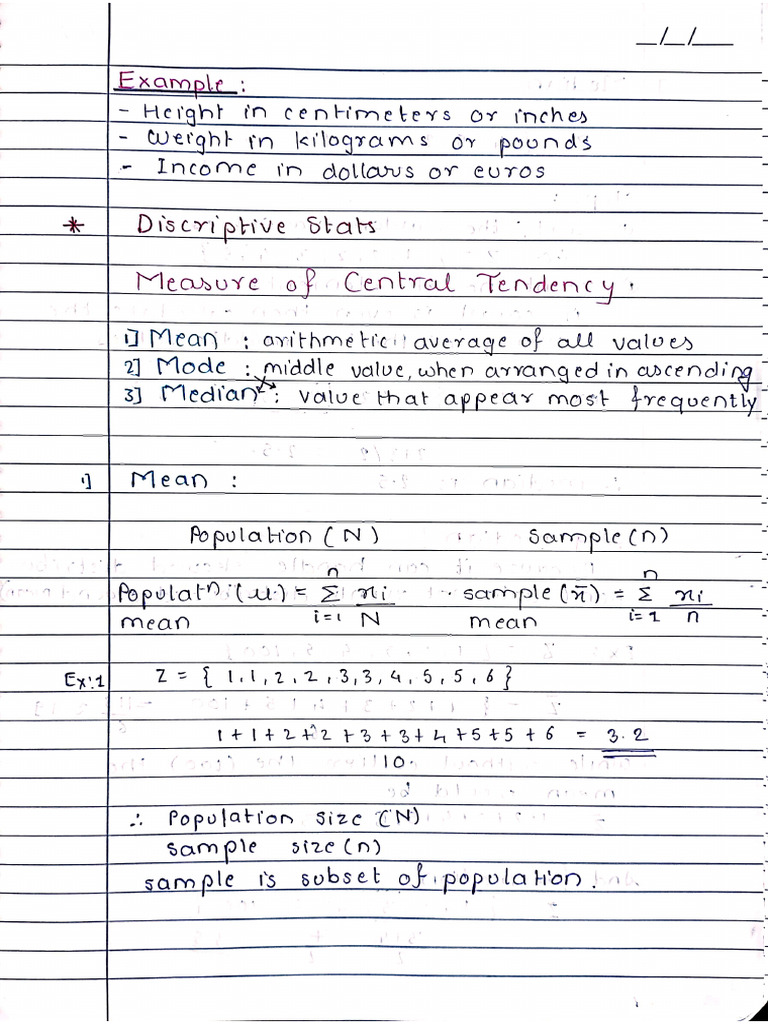 _/_/__
Example :
- Height in centimeters or inches
- Weight in kilograms or pounds
- Income in dollars or euros
* Discriptive Stats
Measure of Central Tendency.
1] Mean : arithmetic average of all values
2] Mode : middle value, when arranged in ascending
3] Median : value that appear most frequently
1] Mean :
Population (N) sample (n)
Populatⁿ (μ) = n Σ i=1 xi/N sample (x̄) = n Σ i=1 xi/n
mean mean
Ex:1 Z = { 1,1, 2, 2, 3,3, 4, 5, 5, 6 }
1+1+2+2+3+3+4+5+5+6 = 3.2
10
∴ Population size (N)
sample size (n)
sample is subset of population.